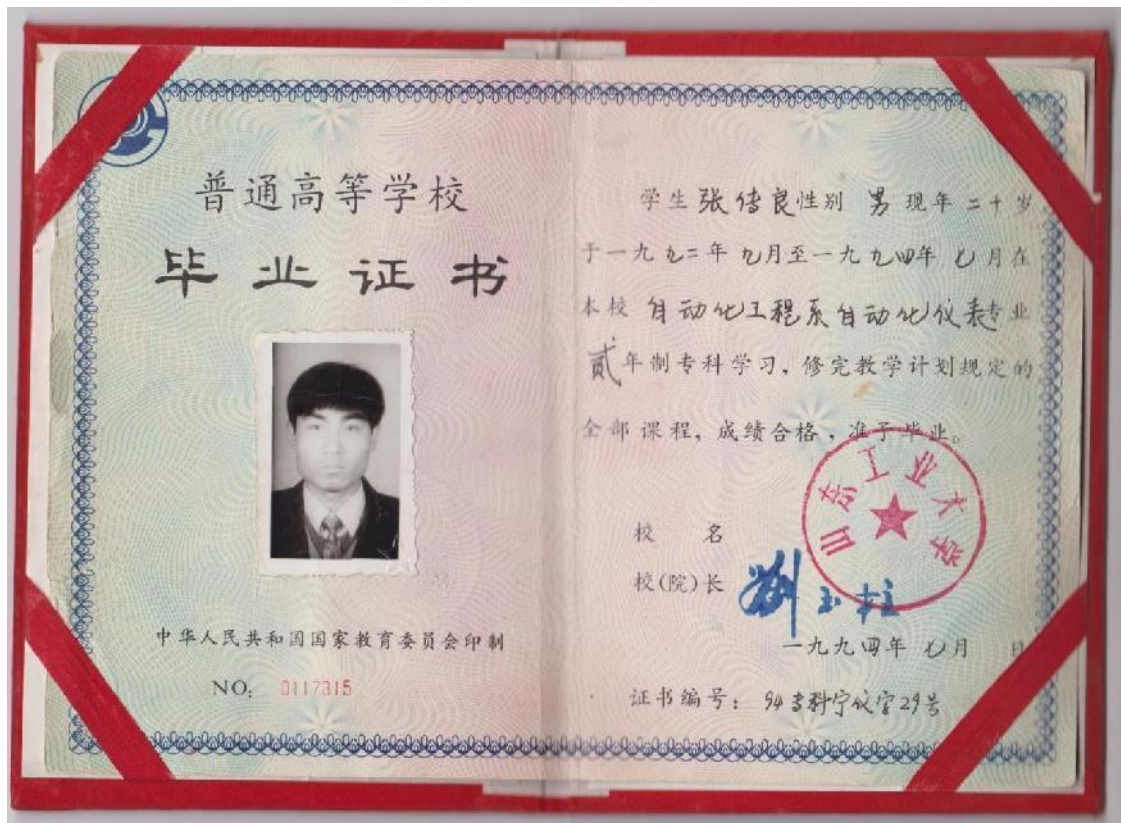 普通高等学校
毕业证书
中华人民共和国国家教育委员会印制
NO: 0117315
学生 张传良 性别 男 现年 二十 岁
于一九九二年 九月至一九九四年 七月在
本校 自动化工程系自动化仪表专业
贰年制专科学习，修完教学计划规定的
全部课程，成绩合格，准予毕业。
山东工业大学
校 名
校(院)长 刘玉柱
一九九四年 七月 日
证书编号： 94专科字仪字29号